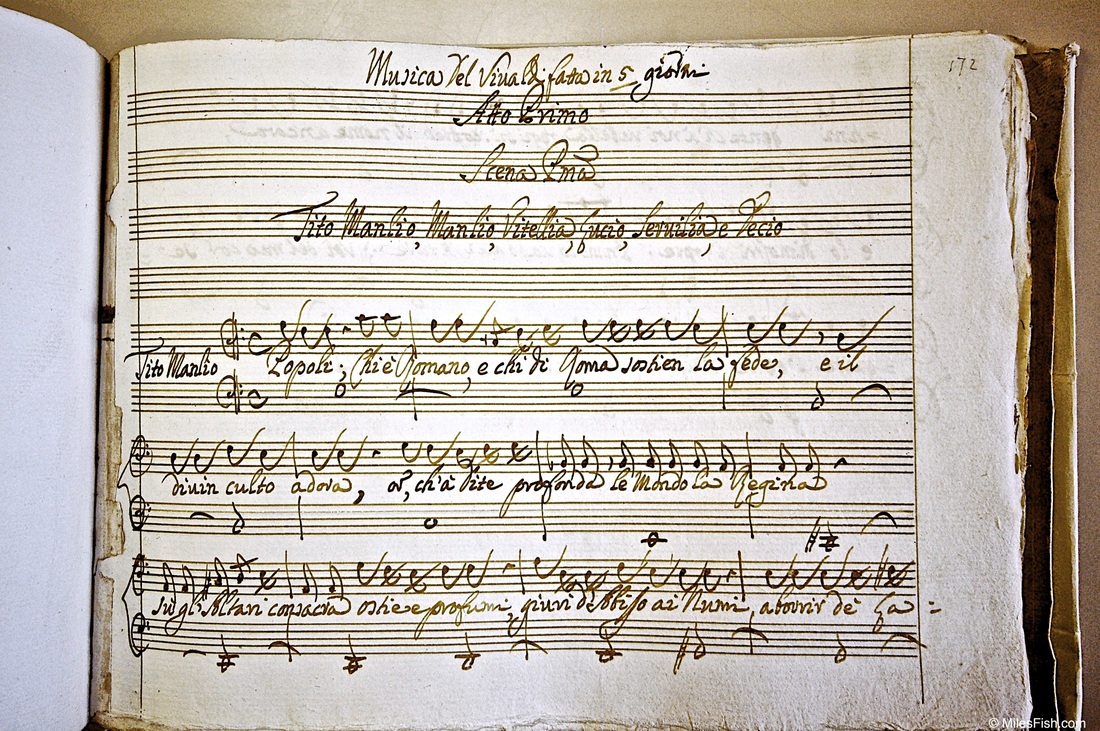 Musica del Vivaldi fatta in 5 giorni
172
Atto Primo
Scena Pma
Tito Manlio, Manlio, Vitellia, Lucio, Servilia, e Decio
Tito Manlio Popoli; Chi è Romano, e chi di Roma sostien la fede, e il
divin culto adora, or, ch'à Dite profonda le Mondo la Regina
sù gl'Altari consacra ostie e profumi, giuri d'abbisso ai Numi, aborrir de La =
© MilesFish.com